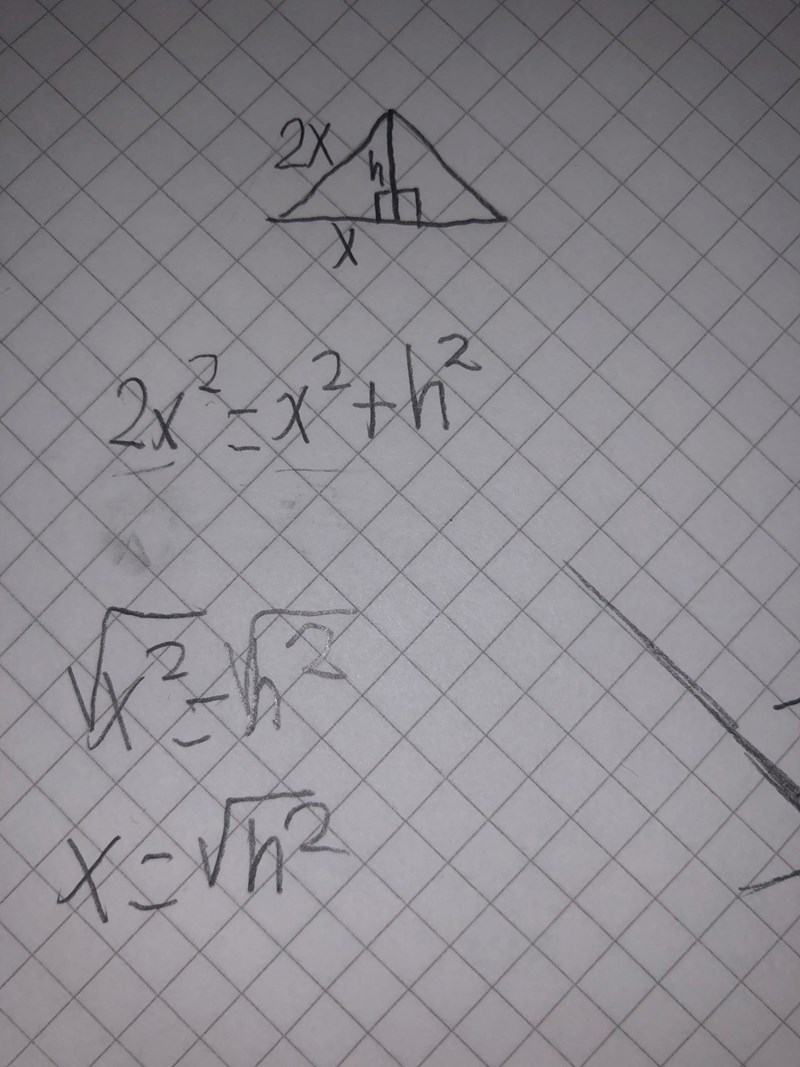 2x
h
x
2x² = x² + h²
√x² = √h²
x = √h²